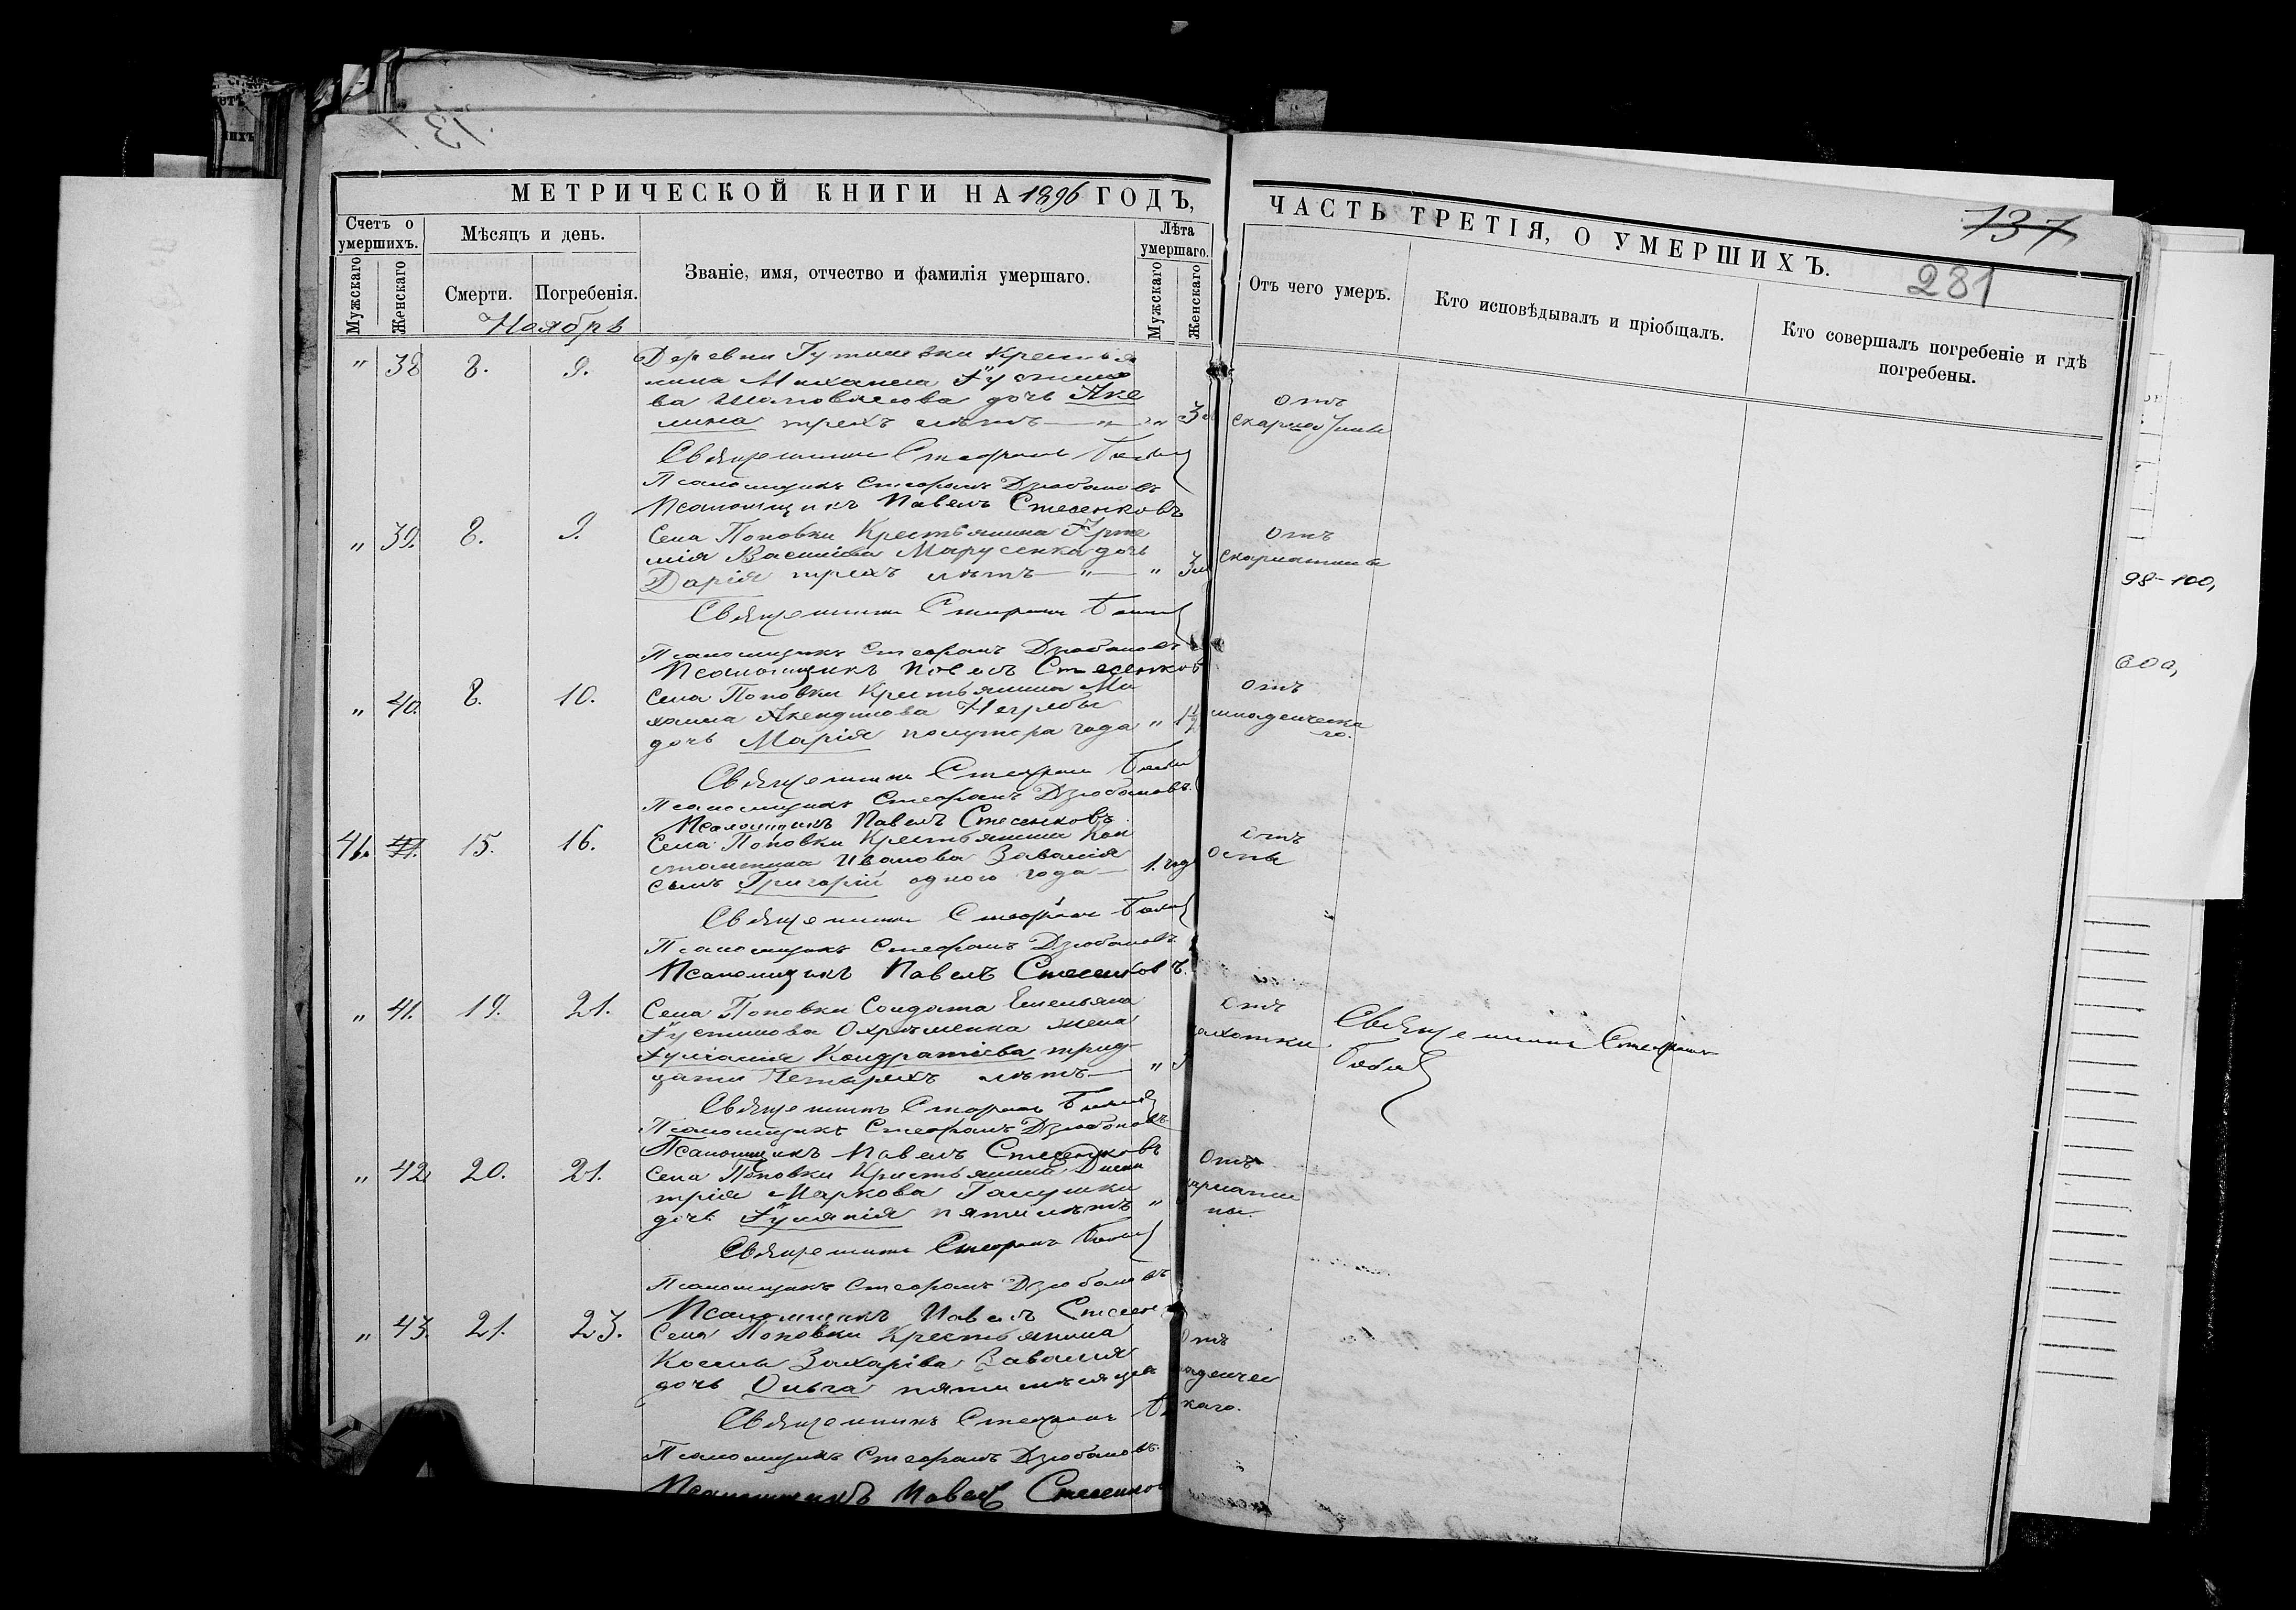 137
МЕТРИЧЕСКОЙ КНИГИ НА 1896 ГОДЪ,
Счетъ о умершихъ.
Мужскаго
Женскаго
Мѣсяцъ и день.
Смерти.
Погребенія.
Ноябрь
Званіе, имя, отчество и фамилія умершаго.
Лѣта умершаго.
Мужскаго
Женскаго
" 38 8. 9.
Деревни Крестья
нина Михаила Іустино
ва дочь Аке
лина трехъ лѣтъ — " — " 3
Священникъ Стефанъ
Псаломщикъ Стефанъ Дзюбановъ
Псаломщикъ Павелъ Стесенковъ
" 39. 8. 9.
Села Поповки Крестьянина Арте
мія Василіева Марусенка дочь
Дарія трехъ лѣтъ — " — " 3
Священникъ Стефанъ
Псаломщикъ Стефанъ Дзюбановъ
Псаломщикъ Павелъ Стесенковъ
" 40. 8. 10.
Села Поповки Крестьянина Ми
хаила Негребы
дочь Марія полутора года " 1½
Священникъ Стефанъ
Псаломщикъ Стефанъ Дзюбановъ.
Псаломщикъ Павелъ Стесенковъ.
41. 41. 15. 16.
Села Поповки Крестьянина Кон
стантина Иванова Завалія
сынъ Григорій одного года — 1. год
Священникъ Стефанъ
Псаломщикъ Стефанъ Дзюбановъ
Псаломщикъ Павелъ Стесенковъ.
" 41. 19. 21.
Села Поповки Солдата Емельяна
Іустинова Охрѣменка жена
Іуліанія Кондратіева трид
цати четырехъ лѣтъ — " 3
Священникъ Стефанъ
Псаломщикъ Стефанъ Дзюбановъ
Псаломщикъ Павелъ Стесенковъ
" 42 20. 21.
Села Поповки Крестьянина Дими
трія Маркова Галушки
дочь Іуліанія пяти лѣтъ "
Священникъ Стефанъ
Псаломщикъ Стефанъ Дзюбановъ
Псаломщикъ Павелъ Стесен
" 43. 21. 23.
Села Поповки Крестьянина
Космы Захаріева Завалія
дочь Ольга пяти мѣсяцев
Священникъ Стефанъ
Псаломщикъ Стефанъ Дзюбановъ.
Псаломщикъ Павелъ Стесенков
ЧАСТЬ ТРЕТІЯ, О УМЕРШИХЪ.
137
281
Отъ чего умеръ.
Кто исповѣдывалъ и пріобщалъ.
Кто совершалъ погребеніе и гдѣ погребены.
отъ
скарлатины
отъ
скарлатины
отъ
младенческа
го.
отъ
оспы
отъ
чахотки.
Священникъ Стефанъ
Отъ
арлати
ны.
Отъ
аденчес
каго.
98-100,
600,